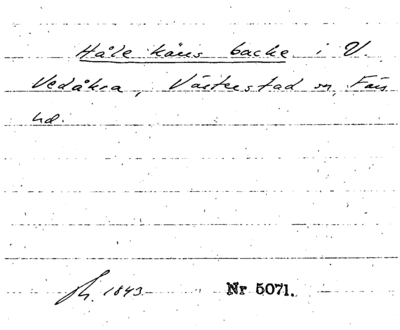 Håle käns backe i V.
Vedåkra, Västerstad sn Färs
hd.
fk. 1843 Nr 5071.